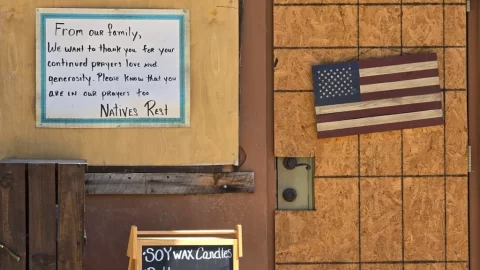 From our family,
We want to thank you for your
continued prayers love and
generosity. Please know that you
are in our prayers too
Natives Rest
SOY WAX Candies